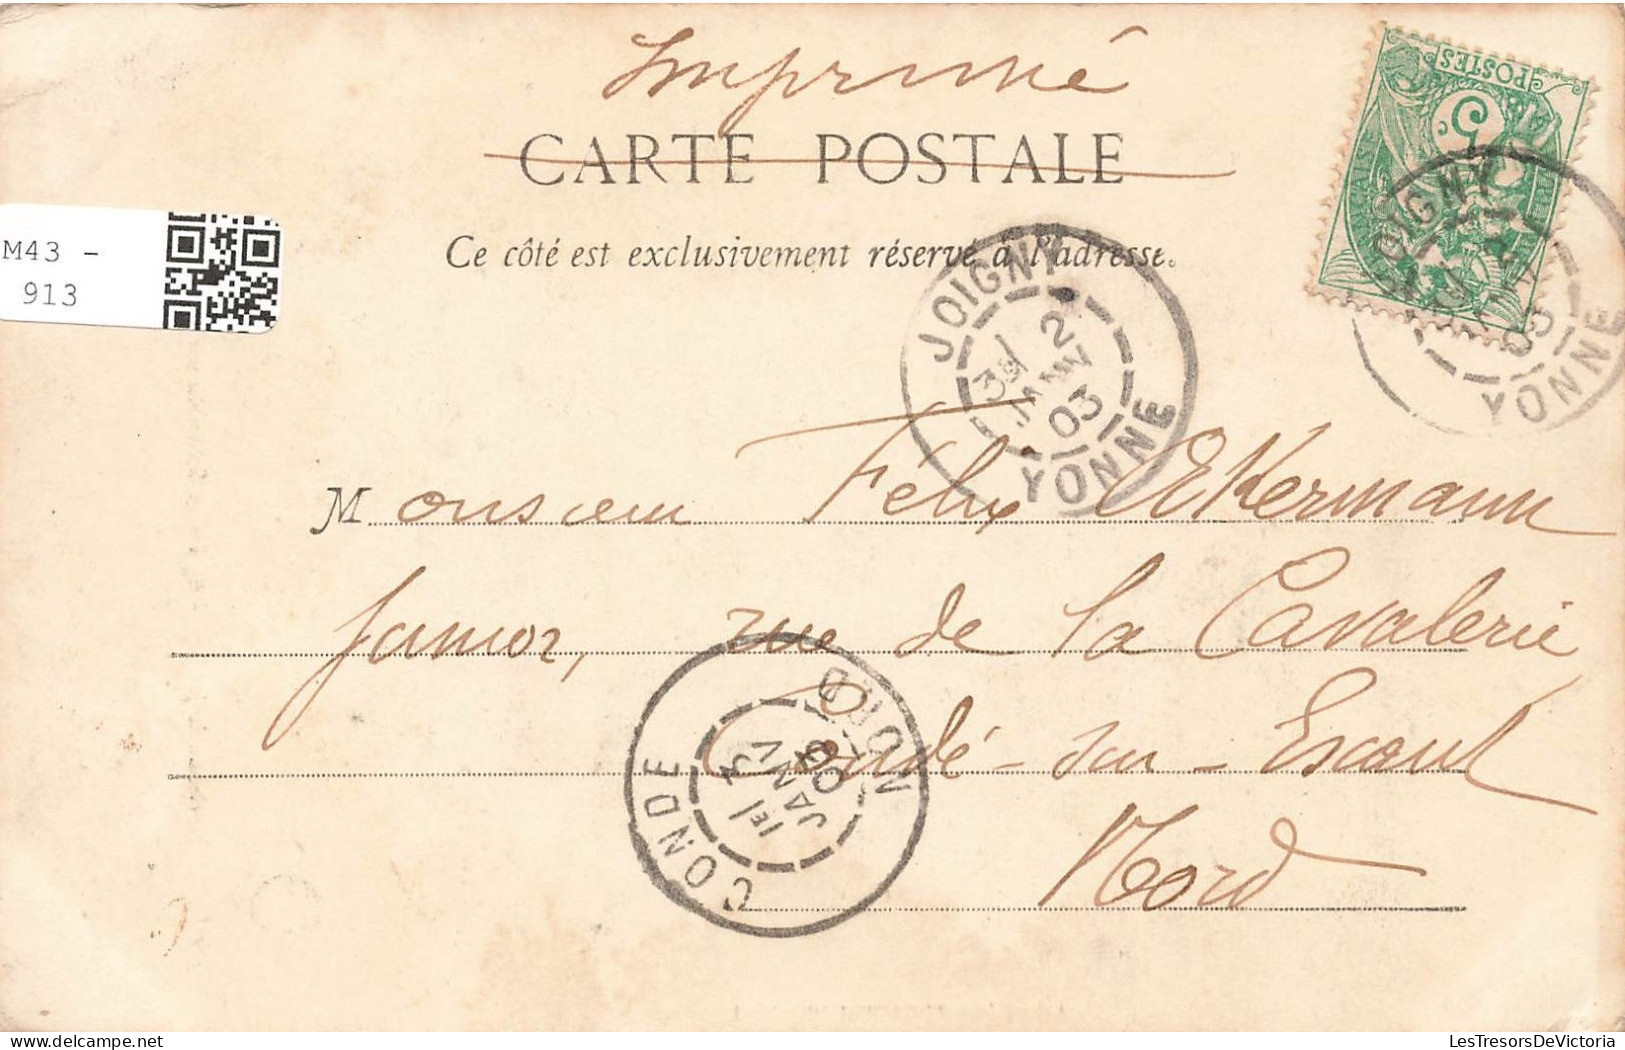 Imprimé
CARTE POSTALE
Ce côté est exclusivement réservé à l'adresse.
M43 -
913
POSTES
5c
JOIGNY
YONNE
JOIGNY
3E 2
JANV
03
YONNE
Monsieur Félix Ekermann
Junior, rue de la Cavalerie
Condé-sur-Escaut
Nord
CONDE
1E 3
JANV
03
NORD
LesTresorsDeVictoria